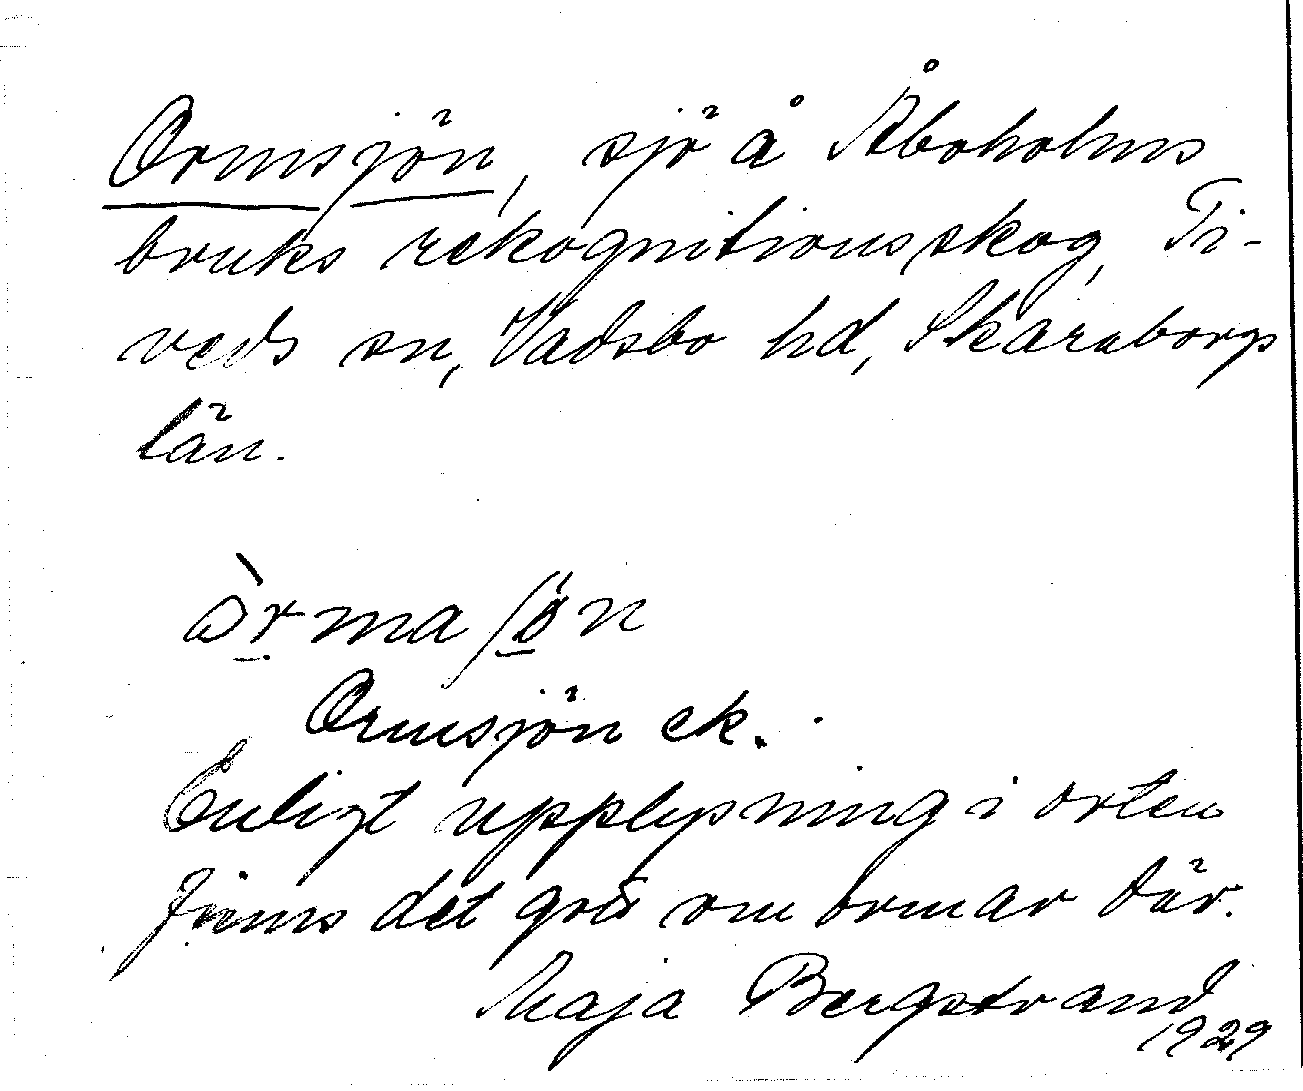 Ormsjön, sjö å Åboholms
bruks rekognitionsskog, Ti-
veds sn, Vadsbo hd, Skaraborgs
län.
òrmaʃön
Ormsjön ek.
Enligt upplysning i orten
finns det gott om ormar där.
Maja Bergstrand
1929